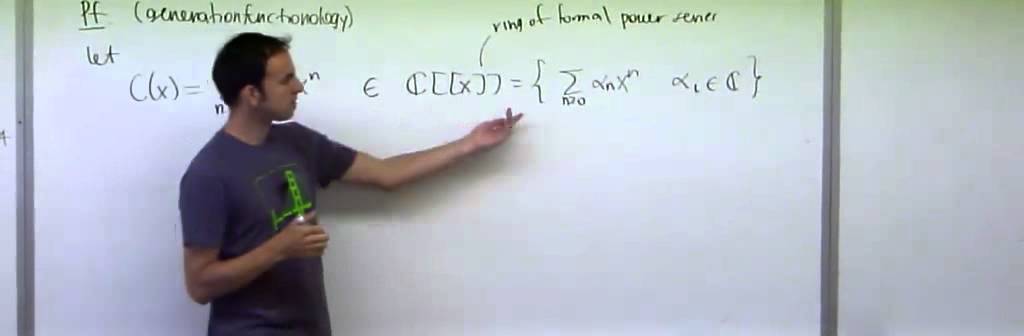 Pf (generationfunctionology)
ring of formal power series
let
C(x) = x^n ∈ ℂ[[x]] = { ∑_{n≥0} α_n x^n α_i ∈ ℂ }